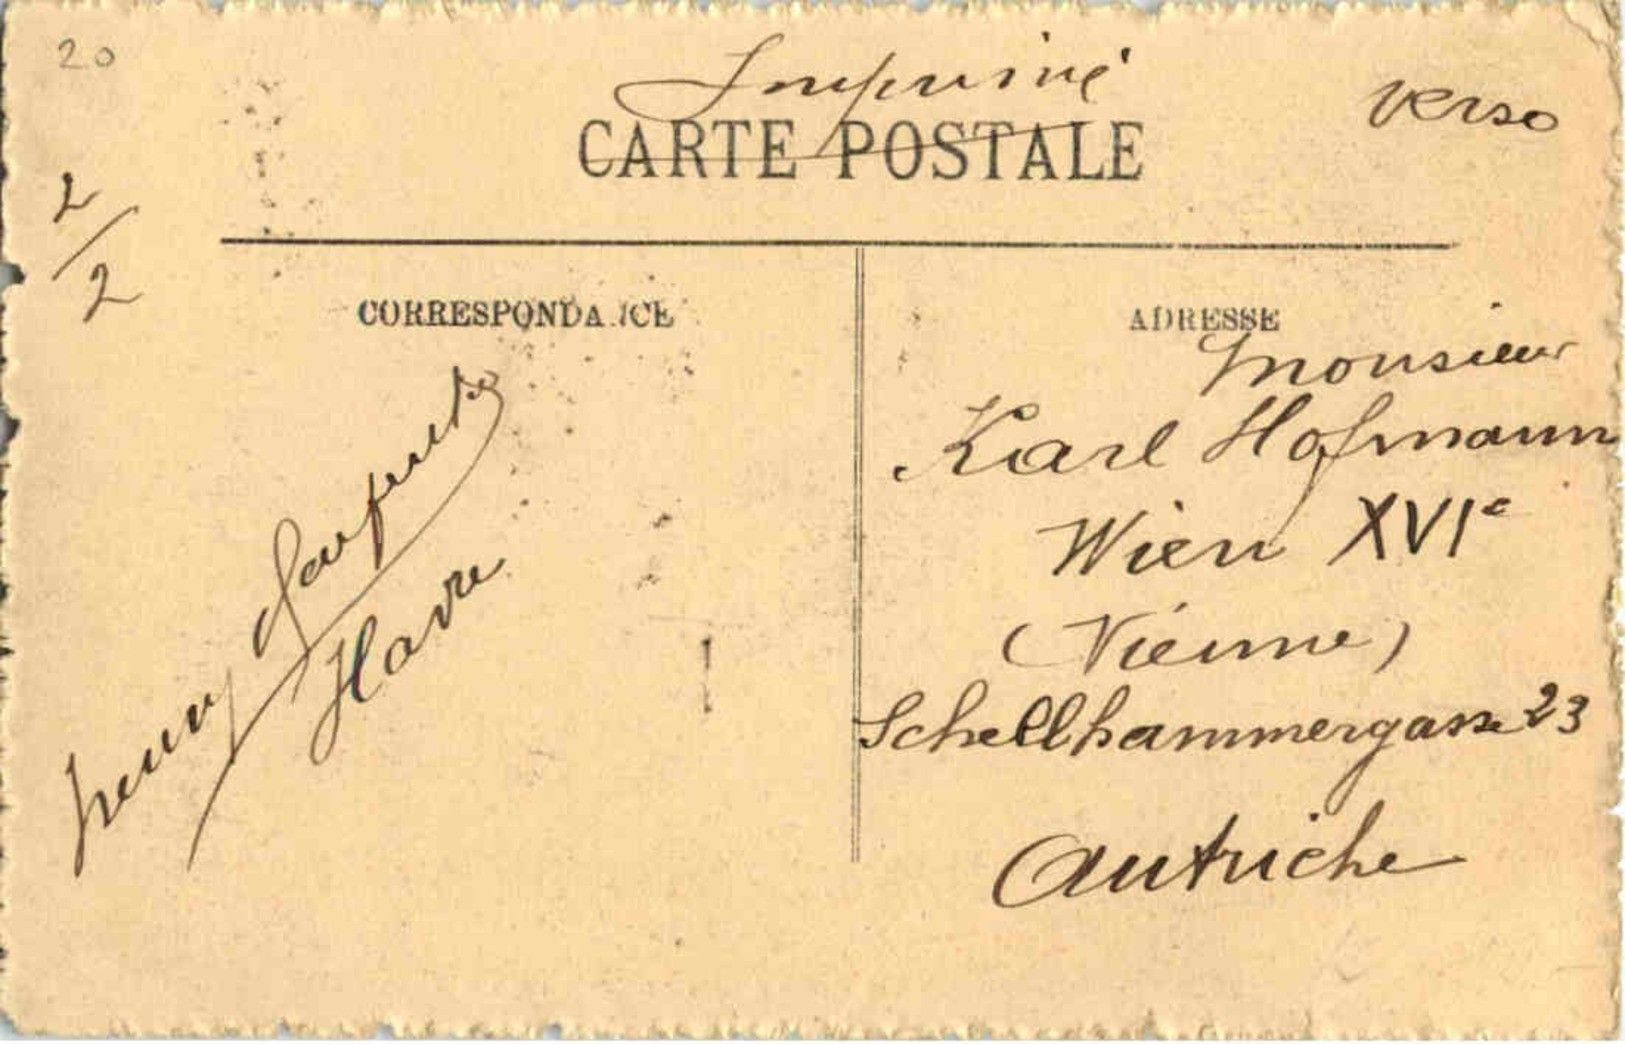 20
Imprimé
verso
CARTE POSTALE
2/2
CORRESPONDANCE
ADRESSE
Monsieur
Karl Hofmann
Wien XVIe
(Vienne)
Schellhammergasse 23
Autriche
Henry
Havre